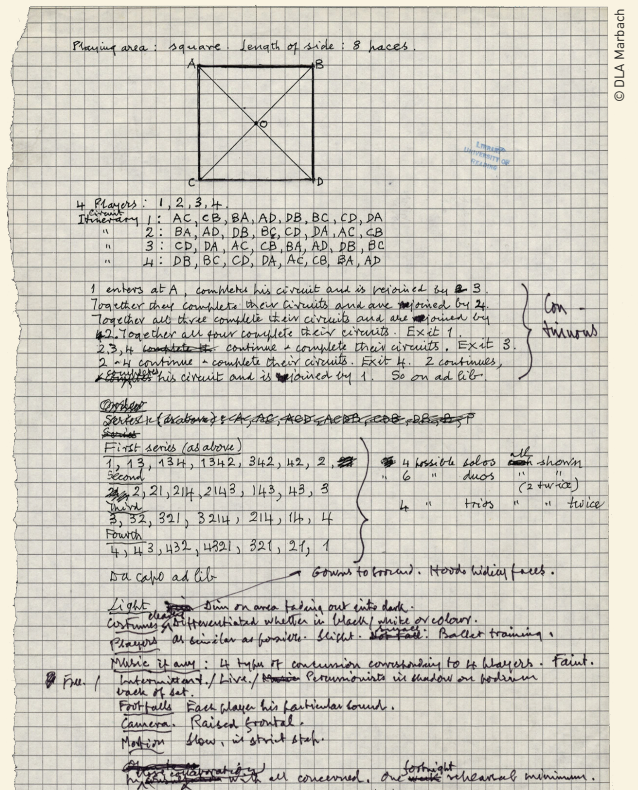 © DLA Marbach
Playing area : square. Length of side : 8 paces.
A B
O
C D
LIBRARY
UNIVERSITY OF
READING
4 Players : 1, 2, 3, 4.
Circuit
Itinerary 1 : AC, CB, BA, AD, DB, BC, CD, DA
" 2 : BA, AD, DB, BC, CD, DA, AC, CB
" 3 : CD, DA, AC, CB, BA, AD, DB, BC
" 4 : DB, BC, CD, DA, AC, CB, BA, AD
1 enters at A, completes his circuit and is rejoined by 3.
Together they complete their circuits and are joined by 4.
Together all three complete their circuits and are joined by
2. Together all four complete their circuits. Exit 1.
2,3,4 complete th continue + complete their circuits. Exit 3.
2 + 4 continue + complete their circuits. Exit 4. 2 continues,
completes his circuit and is joined by 1. So on ad lib.
Con-
tinuous
Series 1 (as above) : A, AC, ACD, ACDB, CDB, DB, B,
Series
First series (as above)
1, 13, 134, 1342, 342, 42, 2,
Second
2, 21, 214, 2143, 143, 43, 3
Third
3, 32, 321, 3214, 214, 14, 4
Fourth
4, 43, 432, 4321, 321, 21, 1
4 possible solos all shown
" 6 " duos " "
(2 twice)
4 " trios " " twice
Da capo ad lib
Gowns to ground. Hoods hiding faces.
Light Dim on area fading out into dark.
Costumes clearly Differentiated whether in black/white or colour.
Players As similar as possible. Slight. Not tall. Ballet training.
Music if any : 4 types of percussion corresponding to 4 players. Faint.
Free / Intermittent. / Live. / Music Percussionists in shadow on podium
back of set.
Footfalls Each player his particular sound.
Camera. Raised frontal.
Motion Slow, in strict step.
collaboration with all concerned. One fortnight week rehearsal minimum.